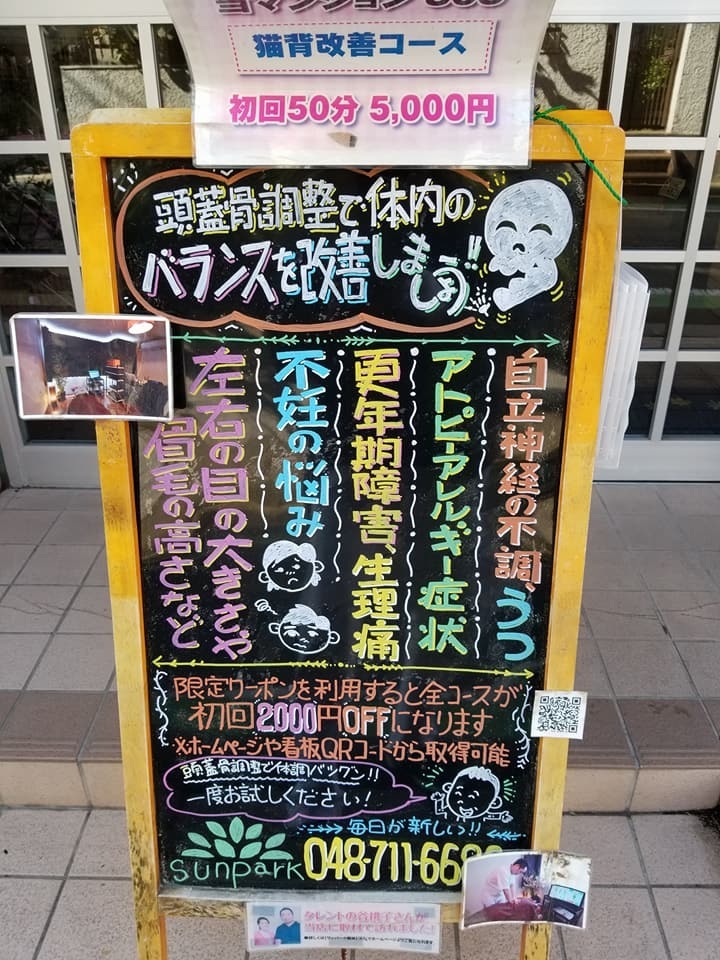 当マンション
猫背改善コース
初回50分 5,000円
頭蓋骨調整で体内の
バランスを改善しましょう!!
自立神経の不調、うつ
アトピーアレルギー症状
更年期障害、生理痛
不妊の悩み
左右の目の大きさや
眉毛の高さなど
限定クーポンを利用すると全コースが
初回2000円OFFになります
※ホームページや看板QRコードから取得可能
頭蓋骨調整で体調バツグン!!
一度お試しください!
毎日が新しい!!
sunpark 048-711-668
タレントの谷桃子さんが
当店に取材で訪れました!